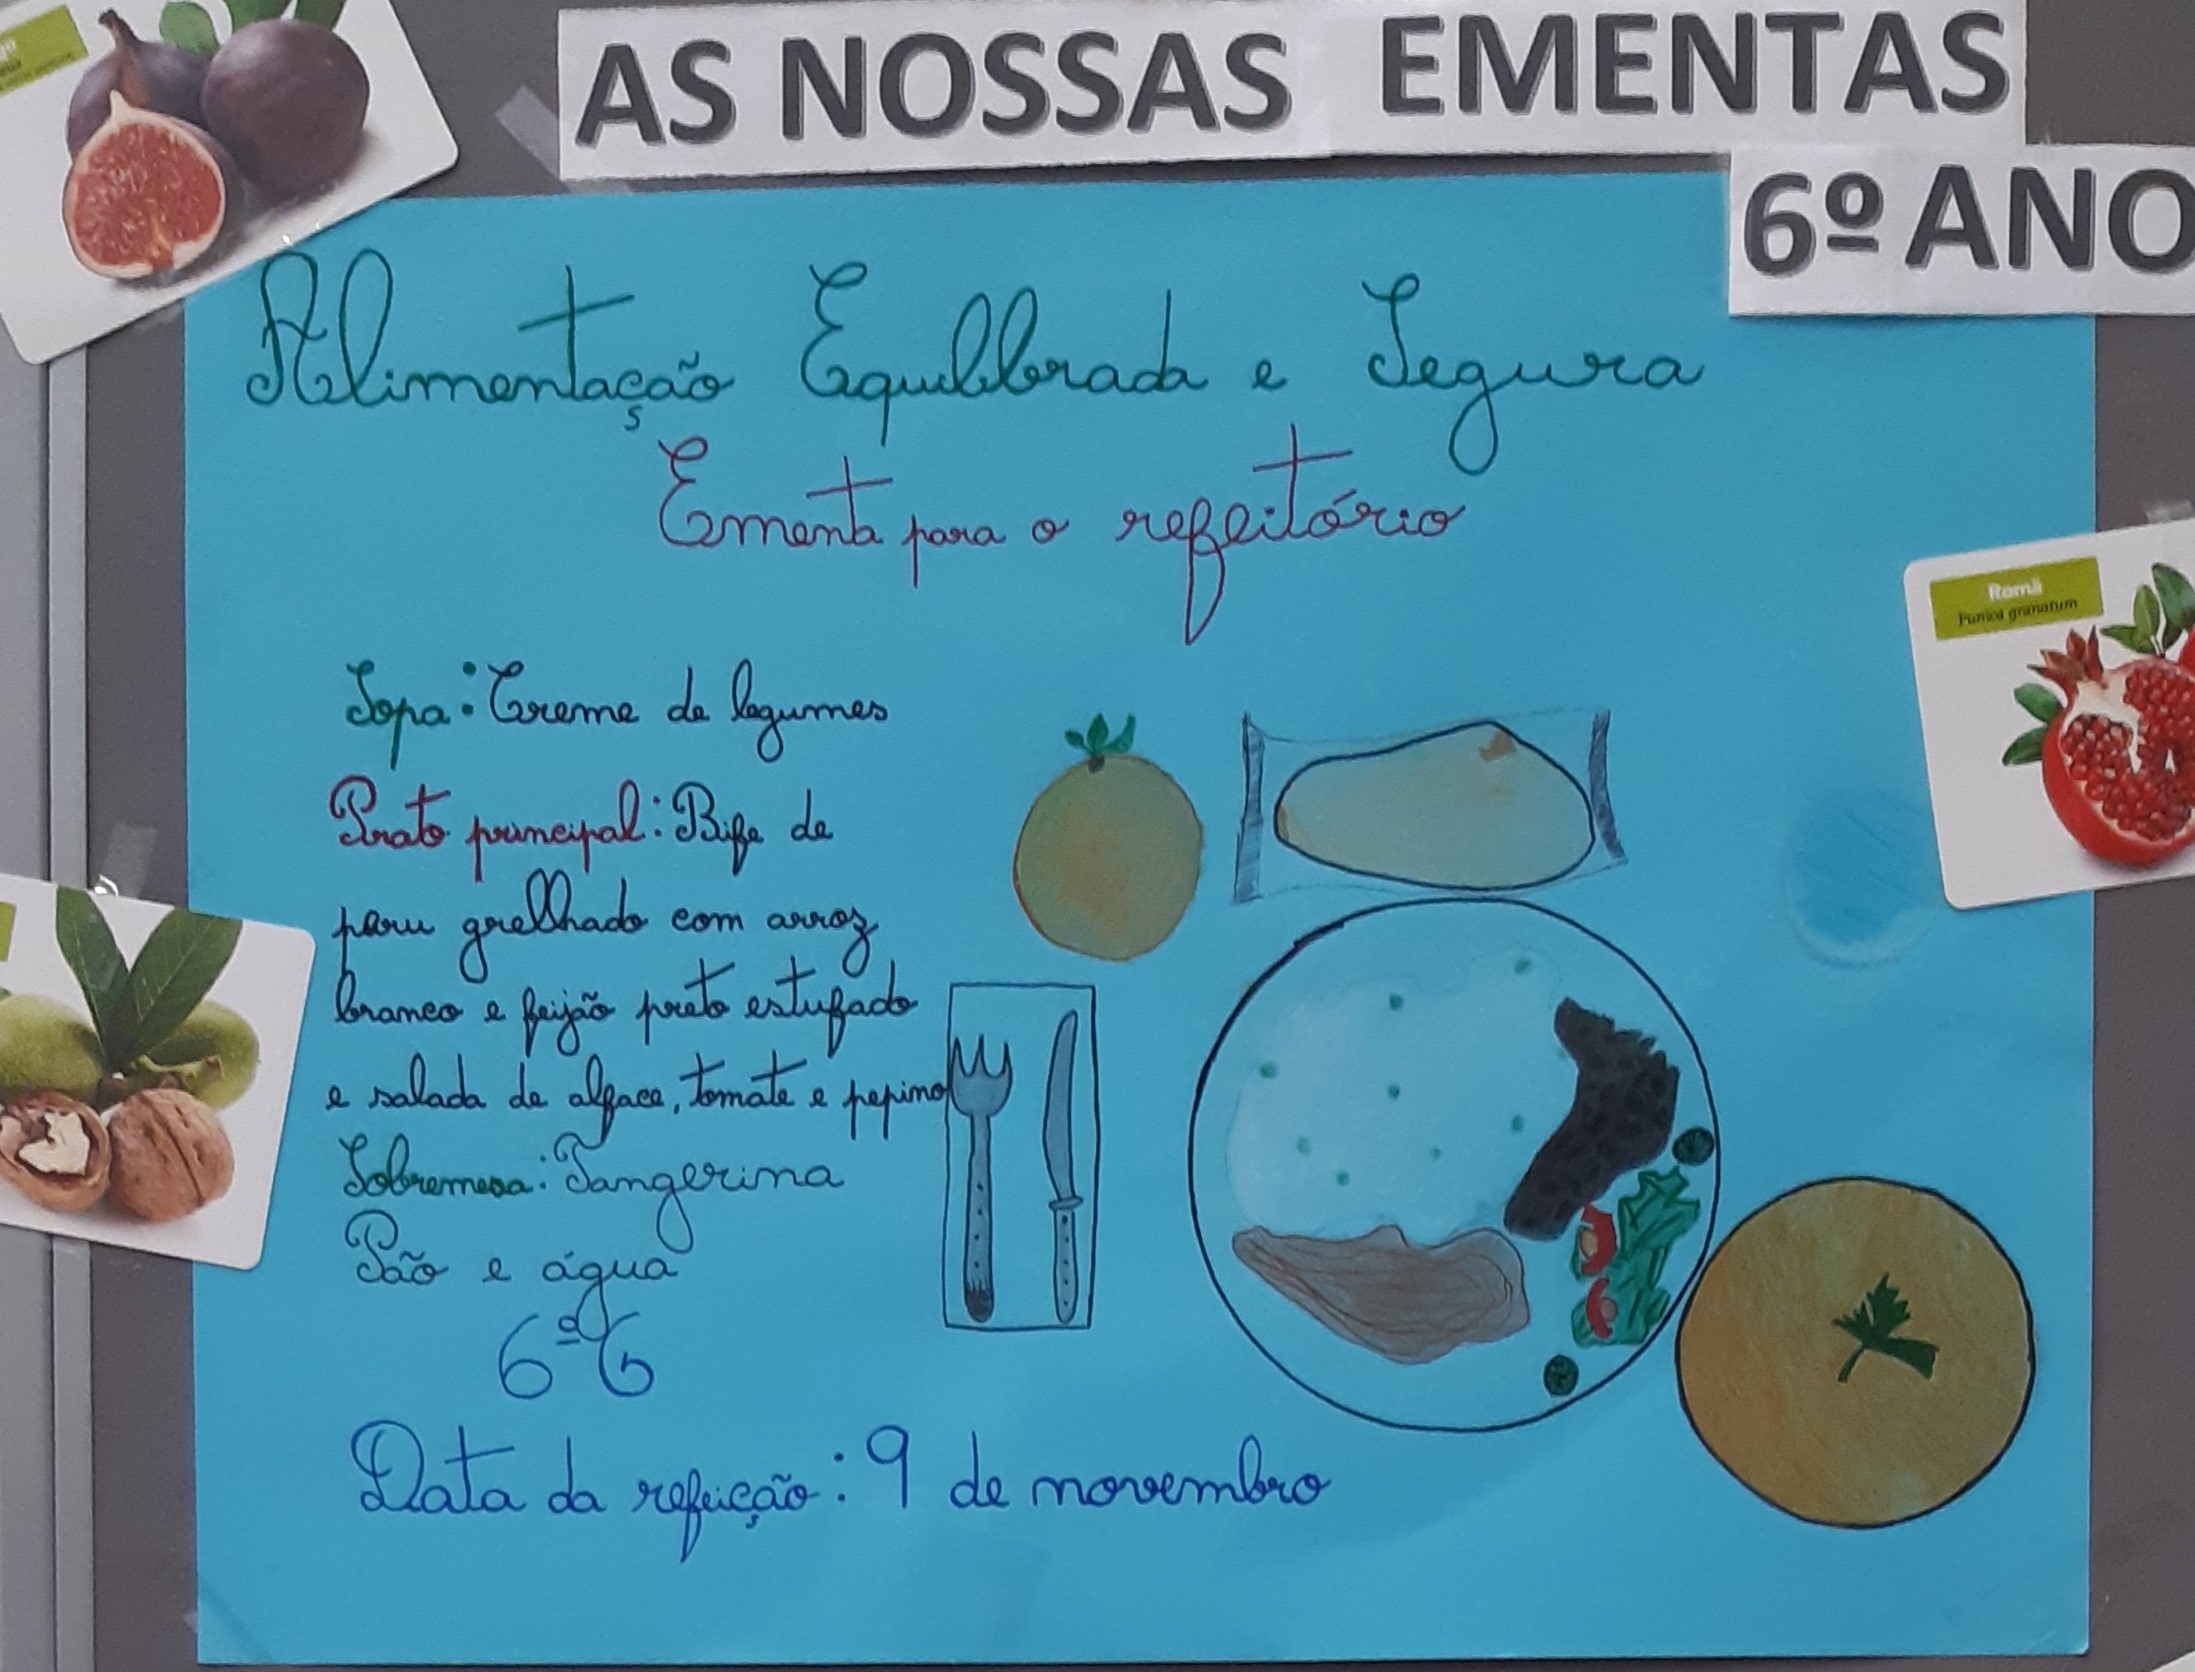 AS NOSSAS EMENTAS
6º ANO
Alimentação Equilibrada e Segura
Ementa para o refeitório
Romã
Punica granatum
Sopa: Creme de legumes
Prato principal: Bife de
peru grelhado com arroz
branco e feijão preto estufado
e salada de alface, tomate e pepino
Sobremesa: Tangerina
Pão e água
Data da refeição: 9 de novembro